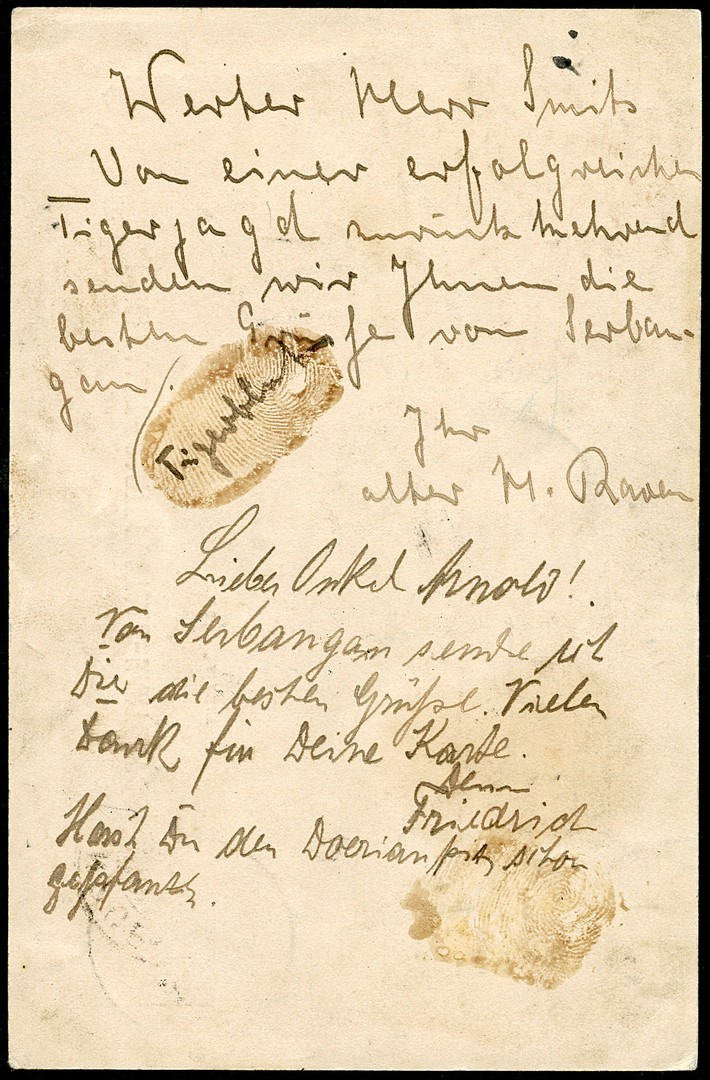 Werter Herr Smits
Von einer erfolgreichen
Tigerjagd zurückkehrend
senden wir Ihnen die
besten Grüsse von Serban-
gan.
Tigerblut
Ihr
alter H. Raven
Lieber Onkel Arnold!
Von Serbangan sende ich
Dir die besten Grüße. Vielen
Dank für Deine Karte.
Dein
Friedrich
Hast Du den Doerian schon
gepflanzt.